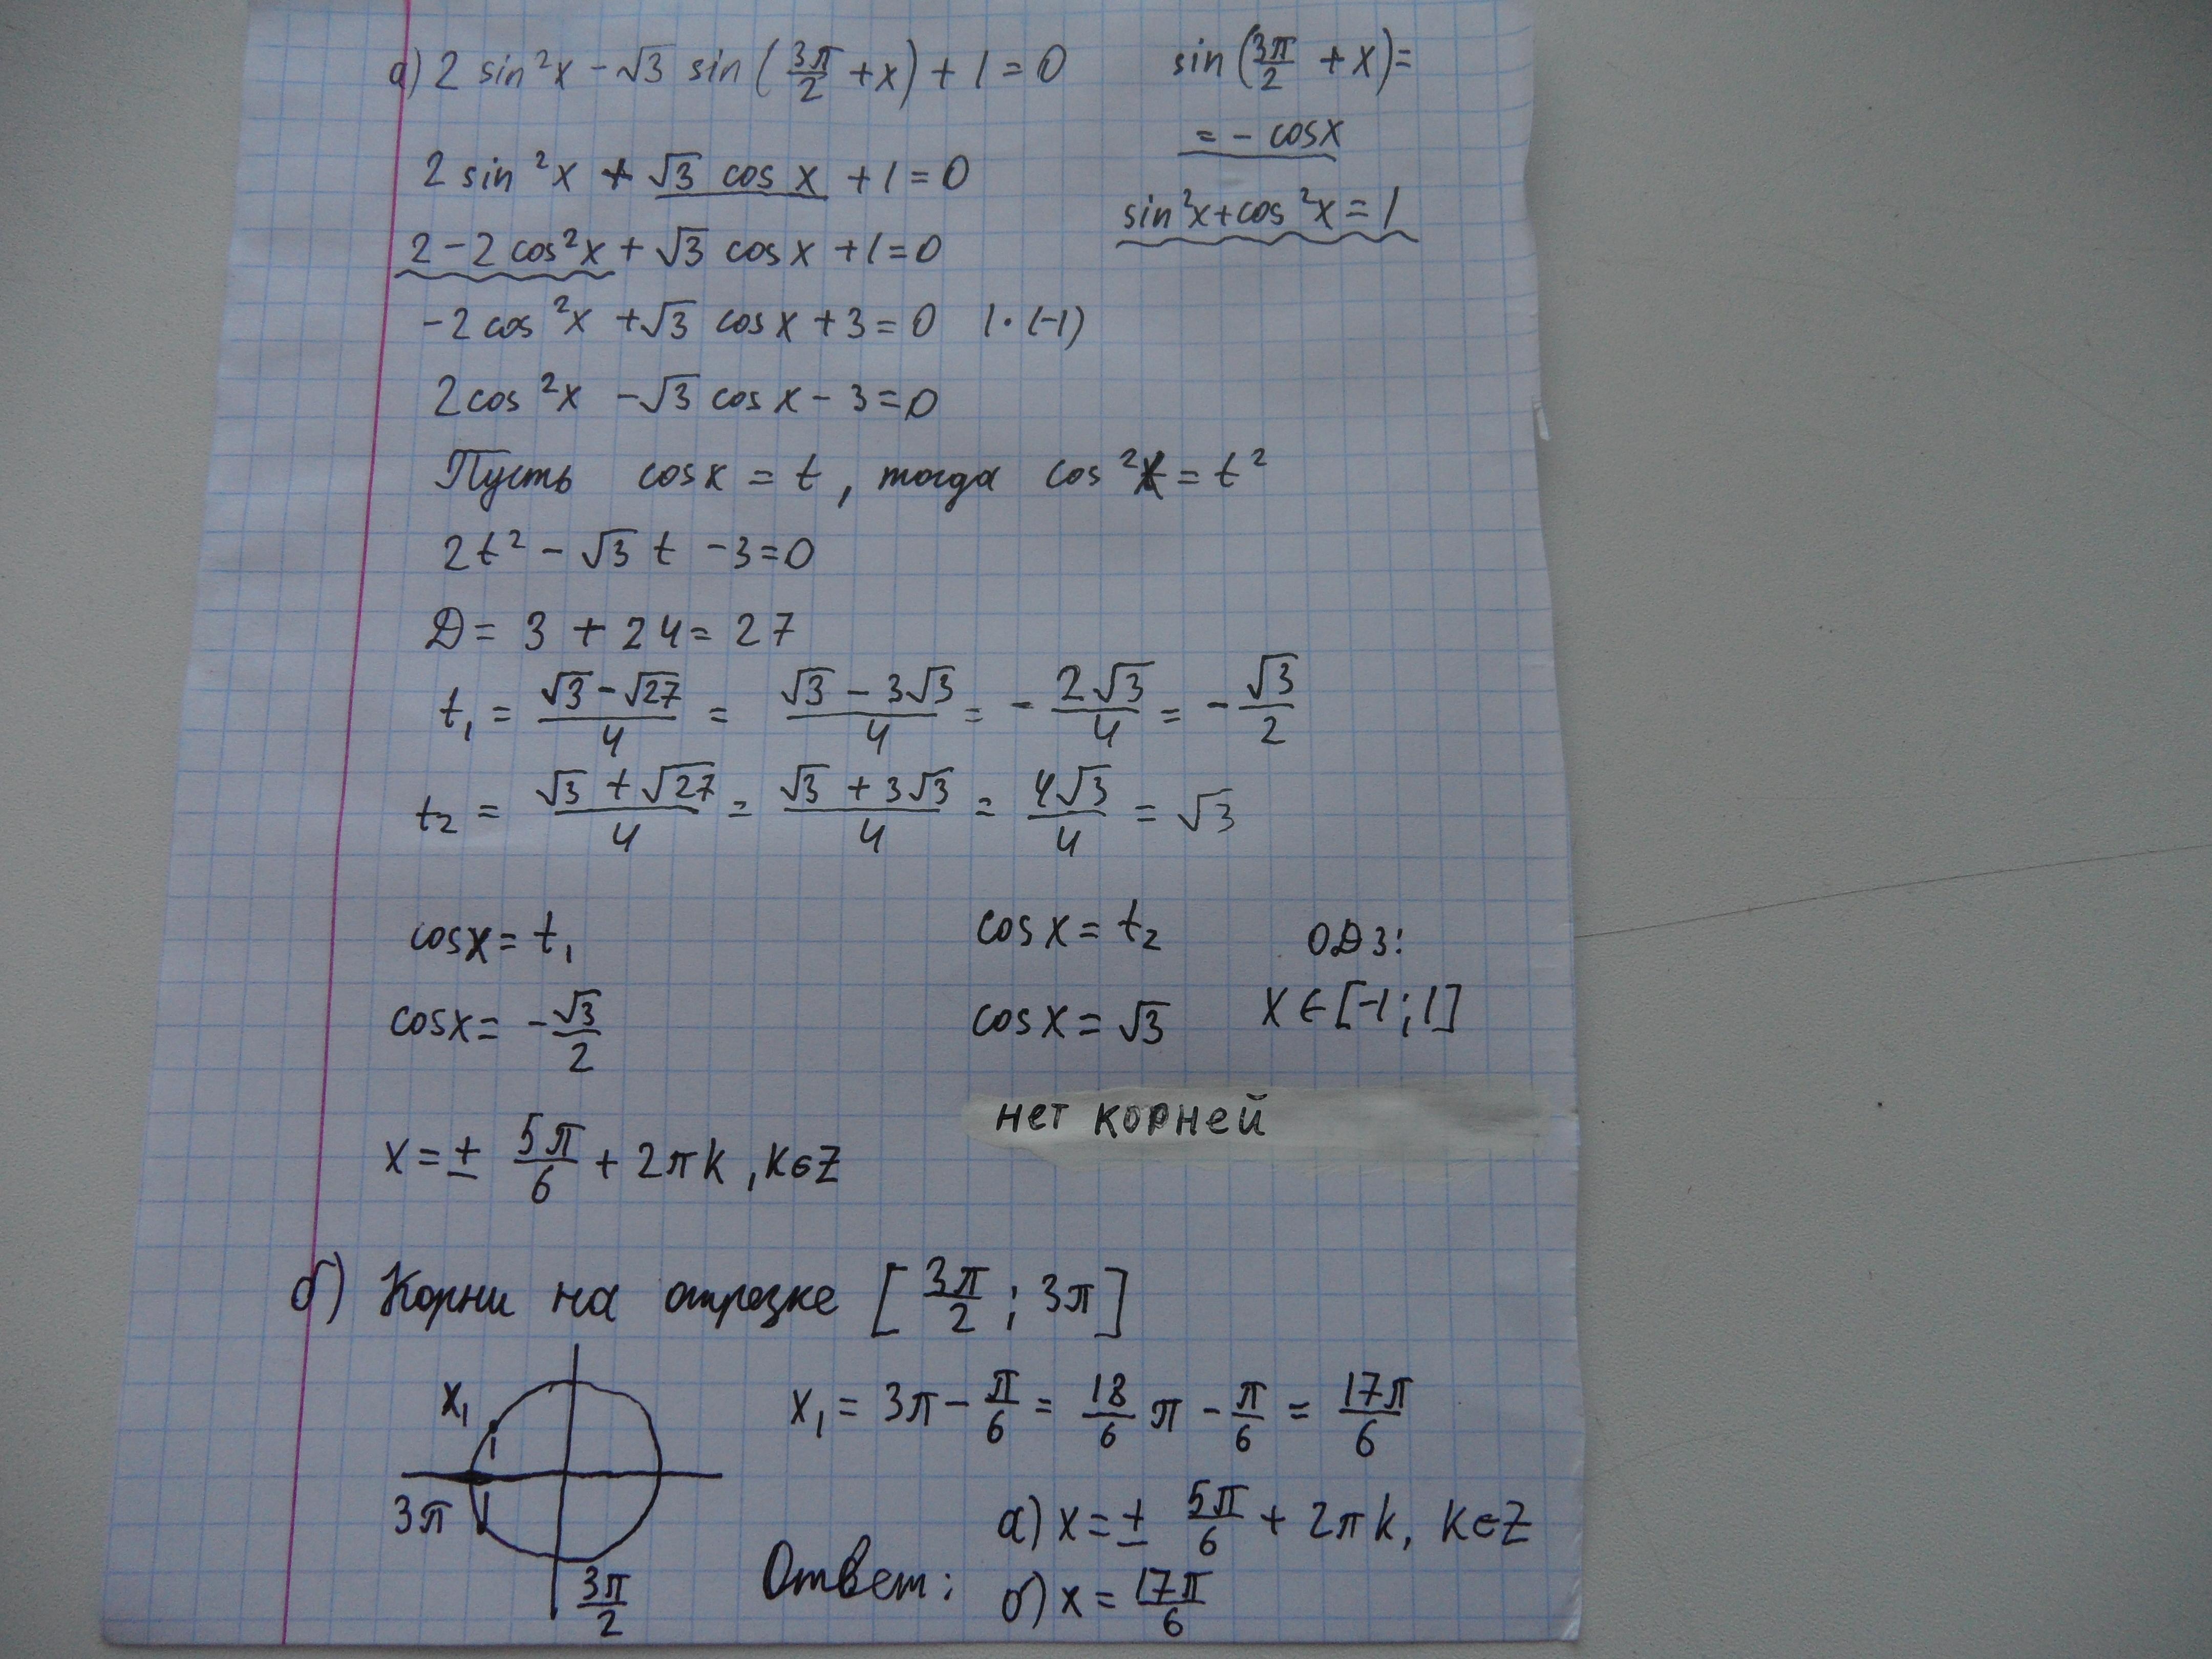 а) 2 sin²x - √3 sin (3π/2 + x) + 1 = 0
sin (3π/2 + x) =
= - cosx
2 sin²x + √3 cos x + 1 = 0
sin²x + cos²x = 1
2 - 2 cos²x + √3 cos x + 1 = 0
-2 cos²x + √3 cos x + 3 = 0 | · (-1)
2 cos²x - √3 cos x - 3 = 0
Пусть cos x = t, тогда cos²x = t²
2t² - √3 t - 3 = 0
D = 3 + 24 = 27
t₁ = (√3 - √27)/4 = (√3 - 3√3)/4 = - 2√3/4 = - √3/2
t₂ = (√3 + √27)/4 = (√3 + 3√3)/4 = 4√3/4 = √3
cosx = t₁
cos x = t₂
ОДЗ:
cosx = - √3/2
cos x = √3
x ∈ [-1; 1]
нет корней
x = ± 5π/6 + 2πk, k∈Z
б) Корни на отрезке [3π/2 ; 3π]
x₁
3π
3π/2
x₁ = 3π - π/6 = 18/6 π - π/6 = 17π/6
Ответ:
а) x = ± 5π/6 + 2πk, k∈Z
б) x = 17π/6